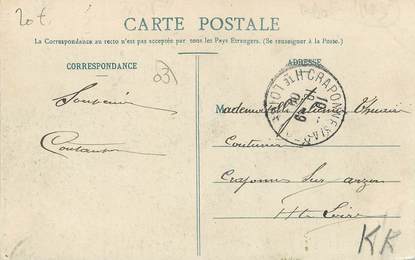 20 t.
CARTE POSTALE
La Correspondance au recto n'est pas acceptée par tous les Pays Etrangers. (Se renseigner à la Poste.)
CORRESPONDANCE
ADRESSE
Souvenir
Mademoiselle
Couturière
Craponne sur arzon
Hte Loire
CRAPONNE-S-ARZON
Hte LOIRE
KK